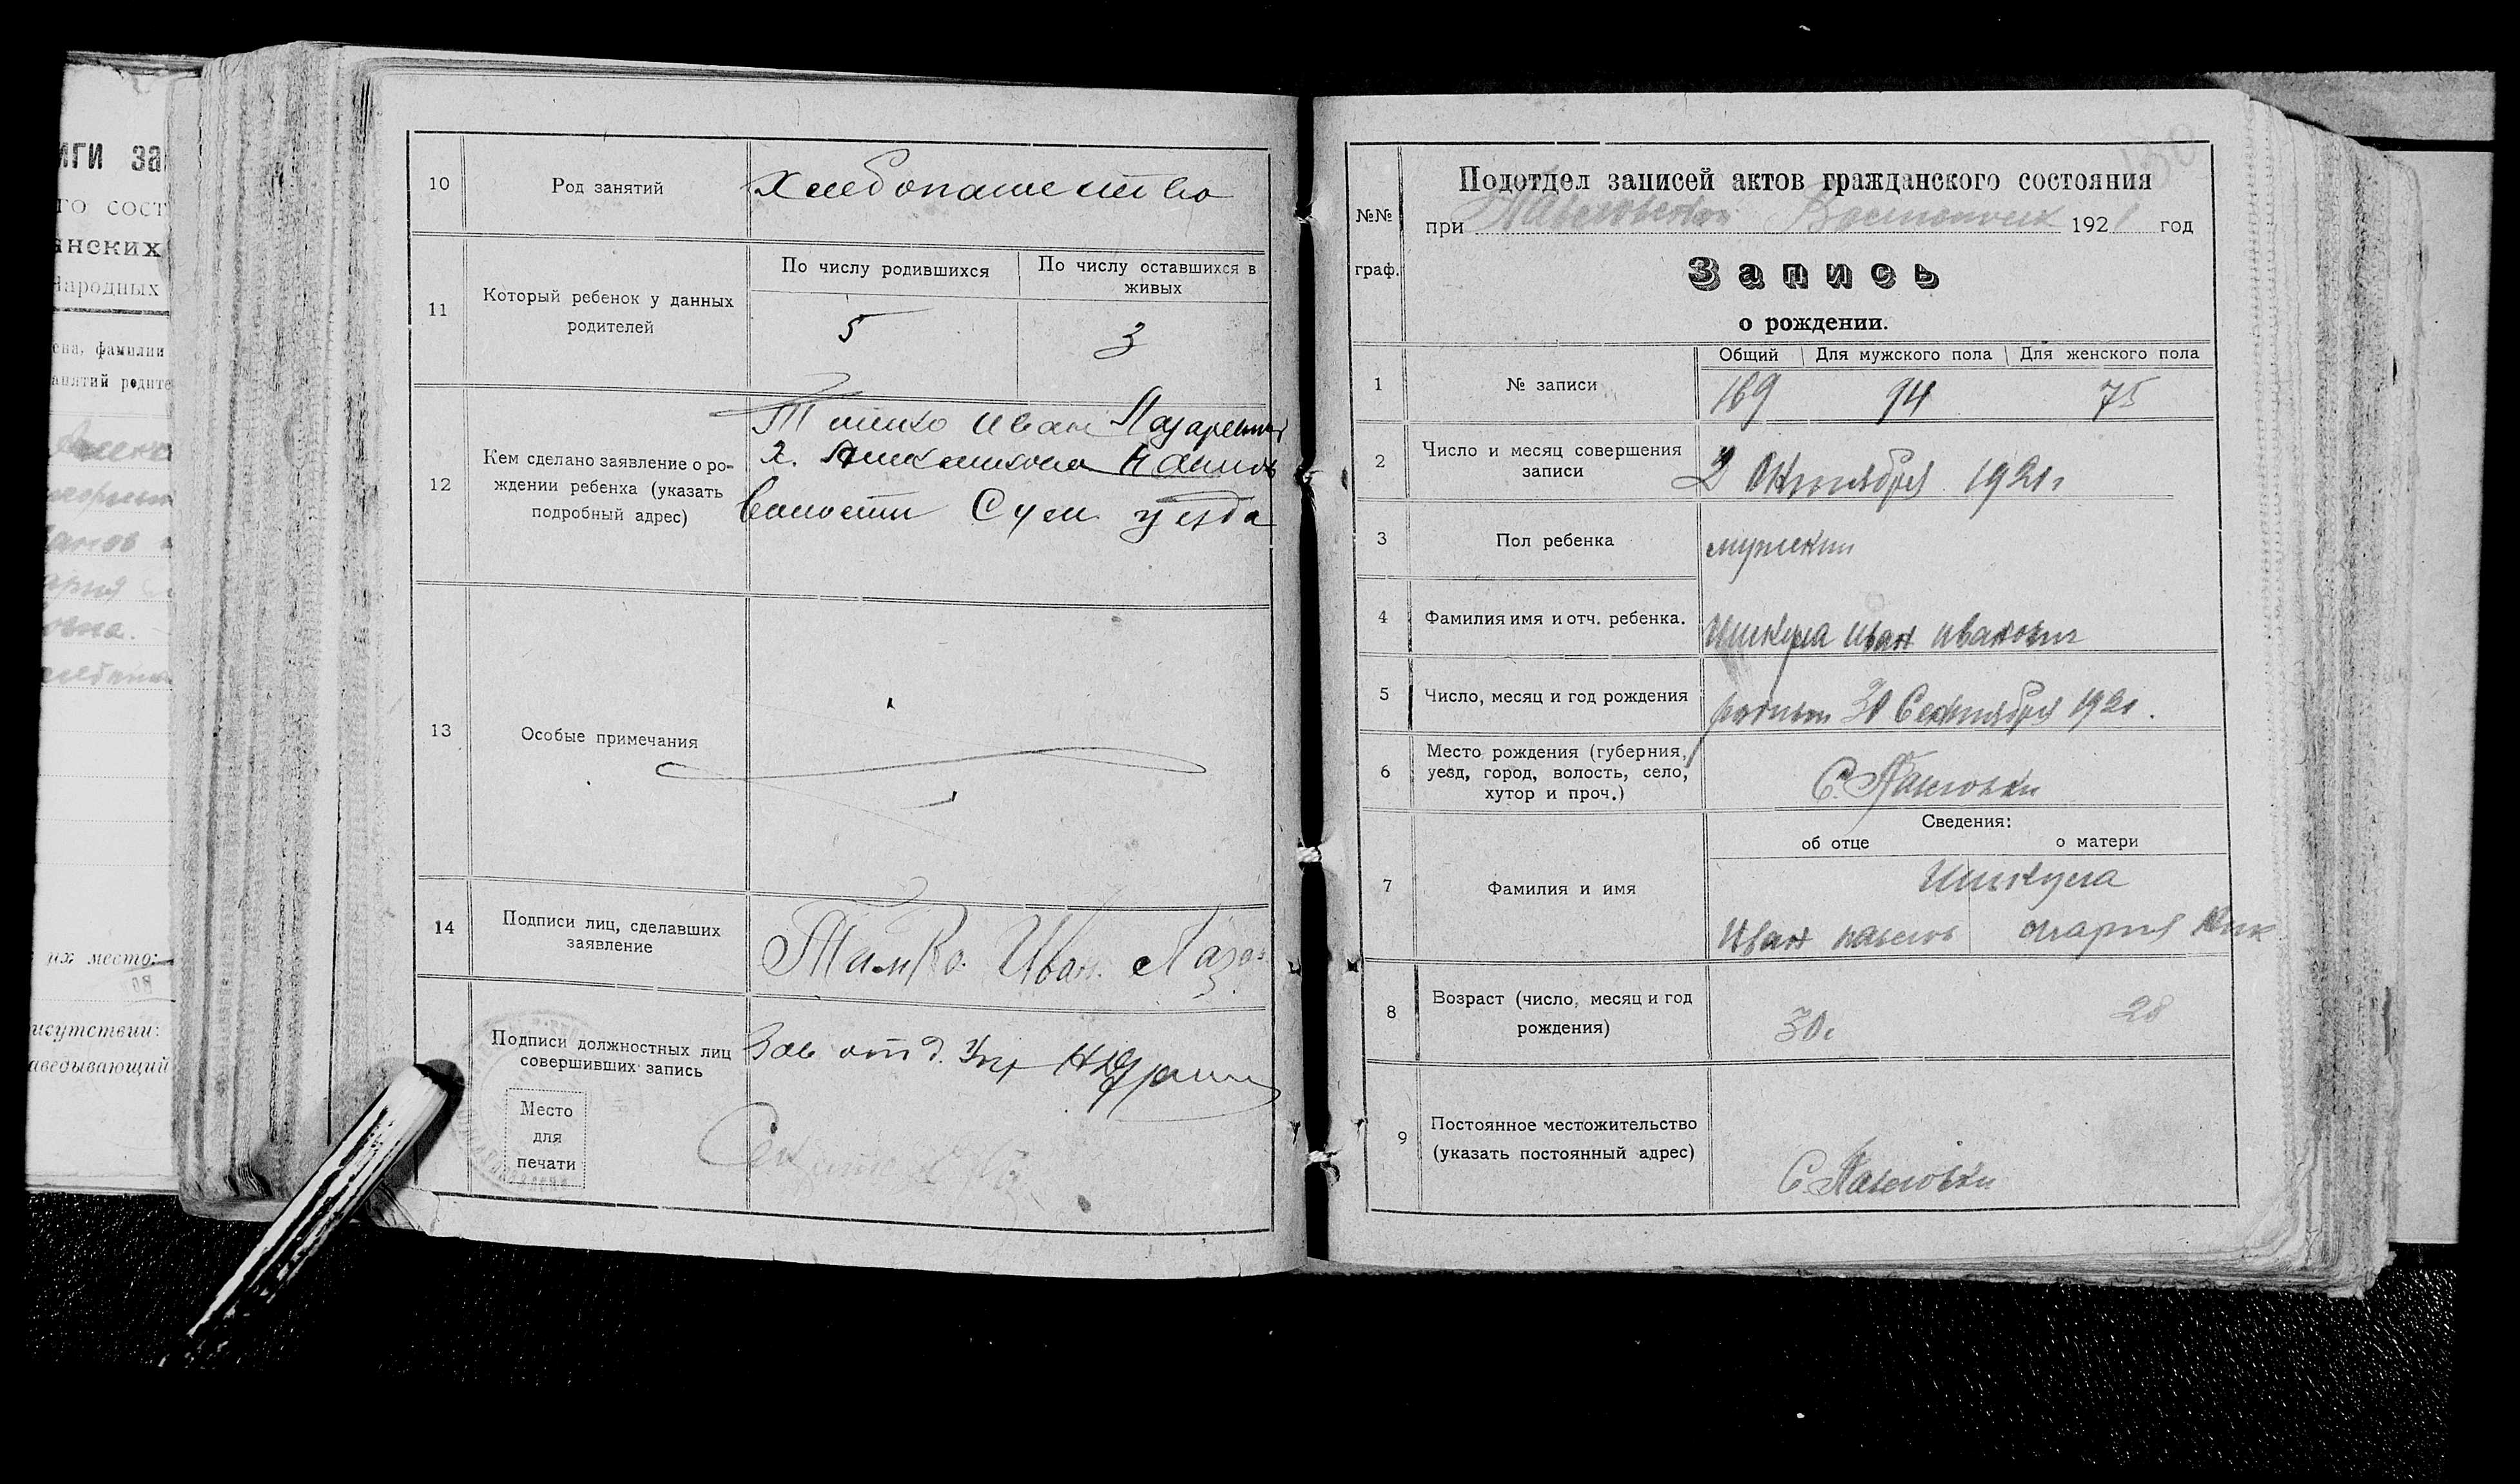 иги за
го сост
анских
Народных
ена, фамилии
анятий родите
их место:
исутствии:
аведывающий
10 Род занятий Хлебопашество
11 Который ребенок у данных родителей
По числу родившихся
По числу оставшихся в живых
5 3
12 Кем сделано заявление о ро-
ждении ребенка (указать
подробный адрес)
Иван Лазаревич
х.
волости Сум уезда
13 Особые примечания
14 Подписи лиц, сделавших
заявление
Иван. Лаза
Подписи должностных лиц
совершивших запись
Зав отд.
Место
для
печати
№№
граф.
Подотдел записей актов гражданского состояния
при 1921 год
Запись
о рождении.
Общий Для мужского пола Для женского пола
1 № записи 169 94 75
2 Число и месяц совершения
записи
2 Октября 1921 г
3 Пол ребенка мужской
4 Фамилия имя и отч. ребенка. Шикула Иван Иванович
5 Число, месяц и год рождения 30 Сентября 1921.
6 Место рождения (губерния,
уезд, город, волость, село,
хутор и проч.)
С. Павловки
Сведения:
об отце о матери
7 Фамилия и имя
Шикула
Иван павлов мария Ник
8 Возраст (число, месяц и год
рождения)
30 г 28
9 Постоянное местожительство
(указать постоянный адрес)
С. Павловки